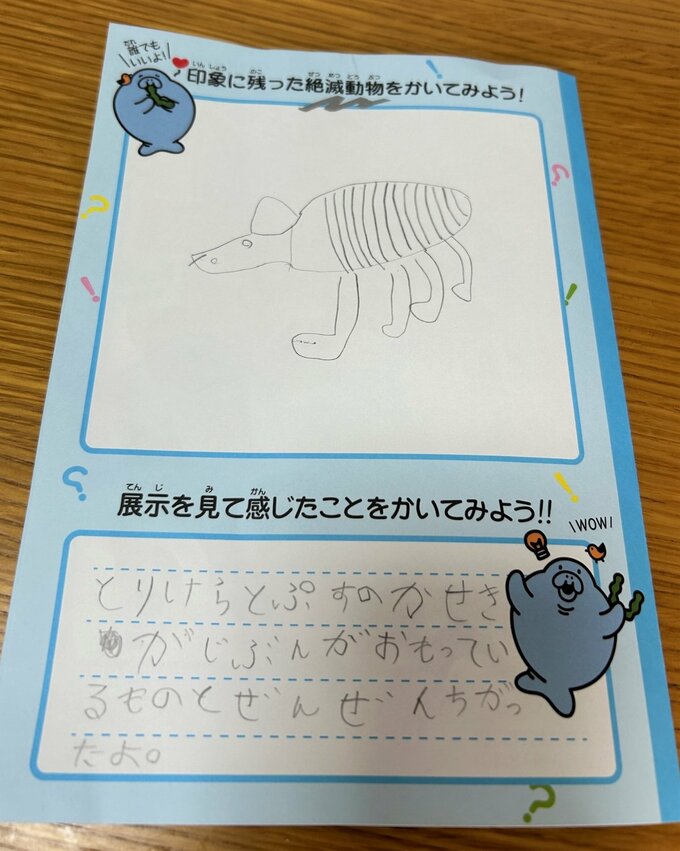 誰でも
いいよ!
印象に残った絶滅動物をかいてみよう!
展示を見て感じたことをかいてみよう!!
WOW!
とりけらとぷすのかせき
がじぶんがおもってい
るものとぜんぜんちがっ
たよ。